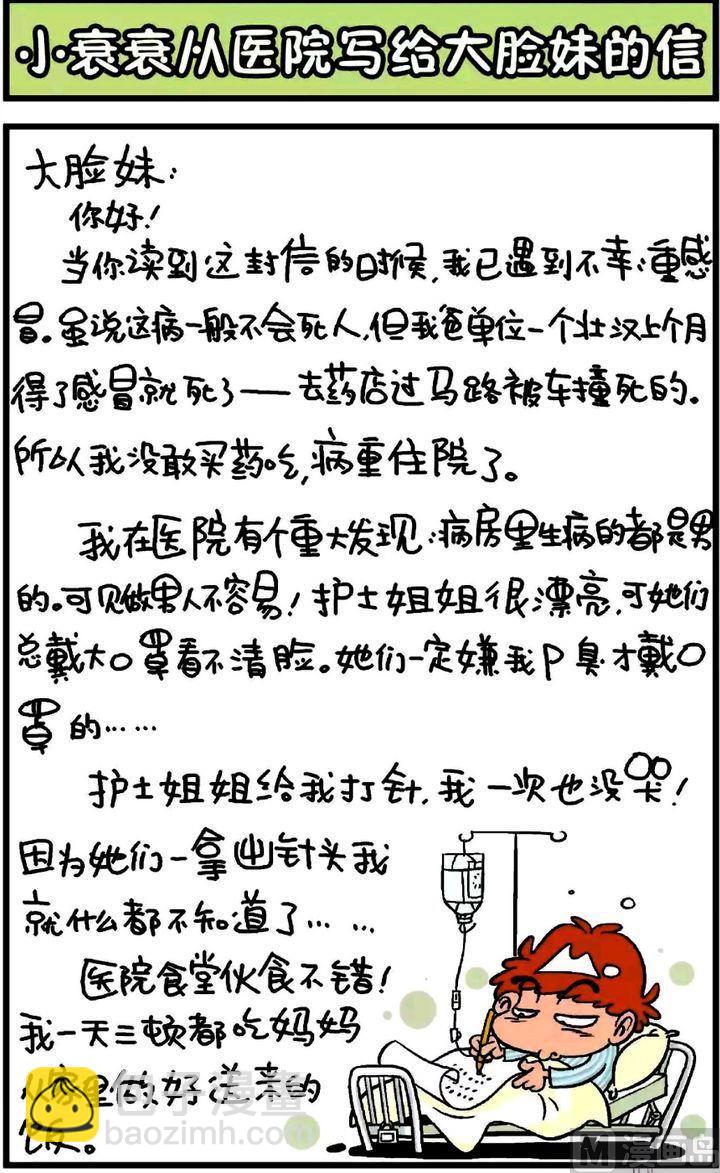 小衰衰从医院写给大脸妹的信
大脸妹:
你好!
当你读到这封信的时候,我已遇到不幸:重感
冒。虽说这病一般不会死人,但我爸单位一个壮汉上个月
得了感冒就死了——去药店过马路被车撞死的。
所以我没敢买药吃,病重住院了。
我在医院有个重大发现:病房里生病的都是男
的。可见做男人不容易!护士姐姐很漂亮,可她们
总戴大口罩看不清脸。她们一定嫌我P臭才戴口
罩的……
护士姐姐给我打针,我一次也没哭!
因为她们一拿出针头我
就什么都不知道了……
医院食堂伙食不错!
我一天三顿都吃妈妈
里做好送来的
饭。
包子漫畫
baozimh.com
M 漫画岛